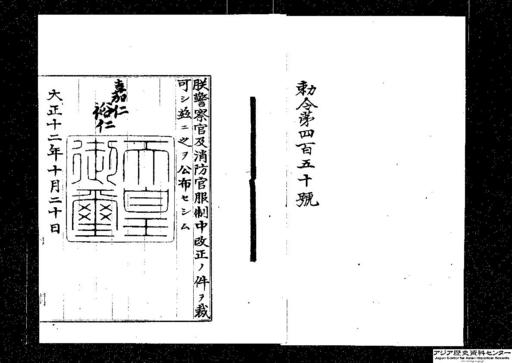 勅令第四百五十號
朕警察官及消防官服制中改正ノ件ヲ裁
可シ茲ニ之ヲ公布セシム
嘉仁
裕仁
天皇
御璽
大正十二年十月二十日
アジア歴史資料センター
Japan Center for Asian Historical Records